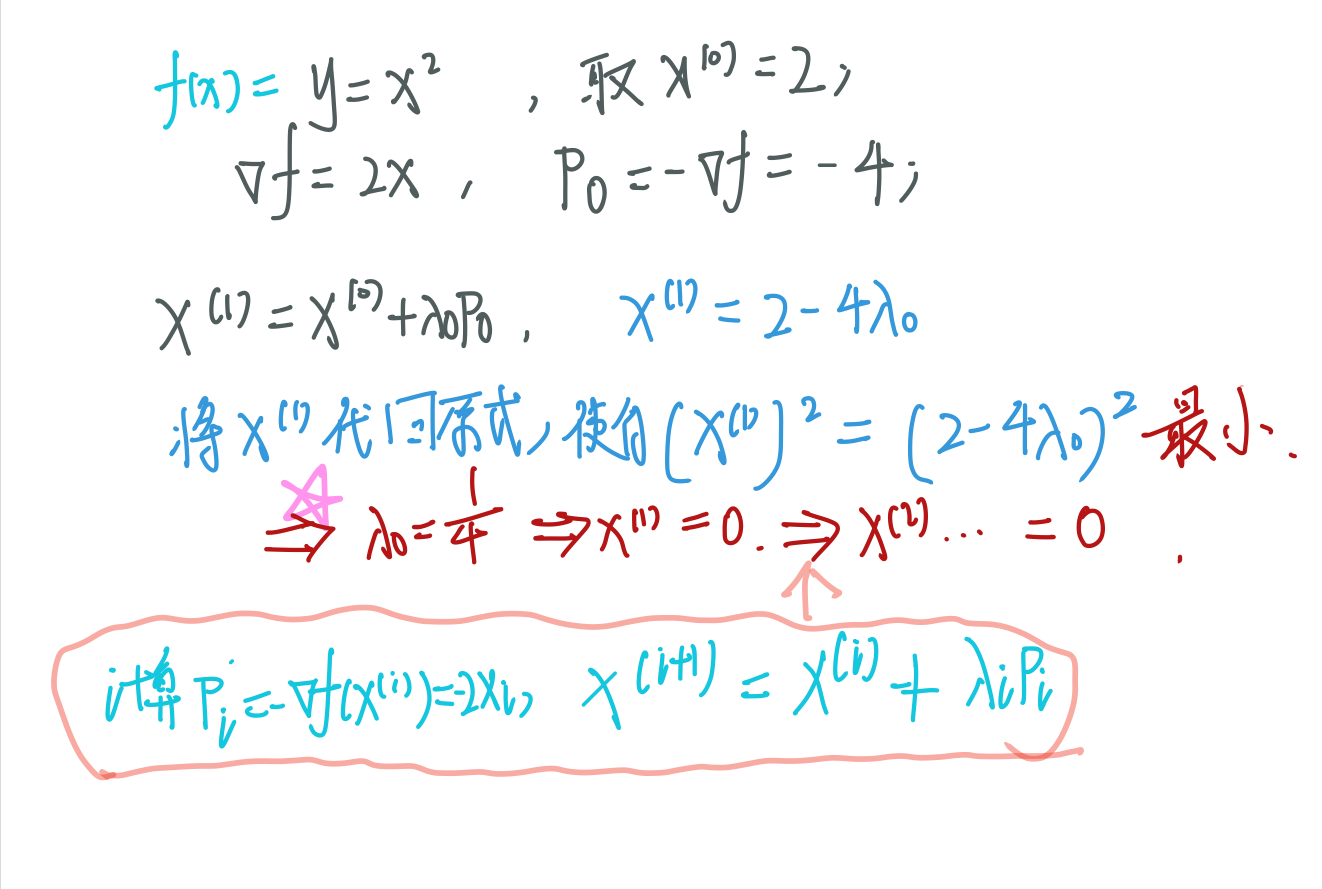 f(x) = y = x² , 取 x⁽⁰⁾ = 2;
∇f = 2x , P₀ = -∇f = -4;
x⁽¹⁾ = x⁽⁰⁾ + λ₀P₀ , x⁽¹⁾ = 2 - 4λ₀
将 x⁽¹⁾ 代回原式, 使得 (x⁽¹⁾)² = (2 - 4λ₀)² 最小.
⇒ λ₀ = 1/4 ⇒ x⁽¹⁾ = 0. ⇒ x⁽²⁾... = 0 .
计算 Pᵢ = -∇f(x⁽ⁱ⁾) = -2xᵢ, x⁽ⁱ⁺¹⁾ = x⁽ⁱ⁾ + λᵢPᵢ